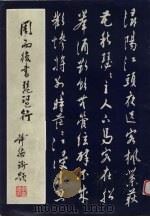 潯陽江頭夜送客楓葉荻
花秋瑟瑟主人下馬客在船
舉酒欲飲無管絃醉不成
歡慘將別別時茫茫江浸
周而復書琵琶行